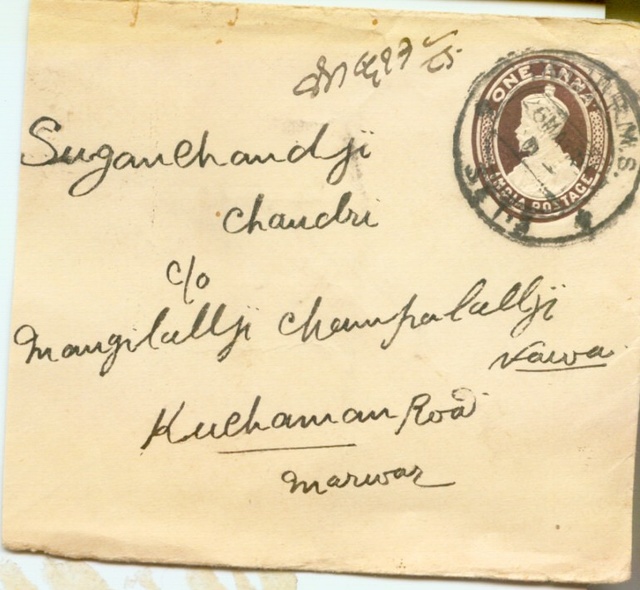 ONE ANNA
INDIA POSTAGE
R.M.S.
Suganchandji
Chandri
c/o
Mangilallji Champalallji
Nawa
Kuchaman Road
Marwar